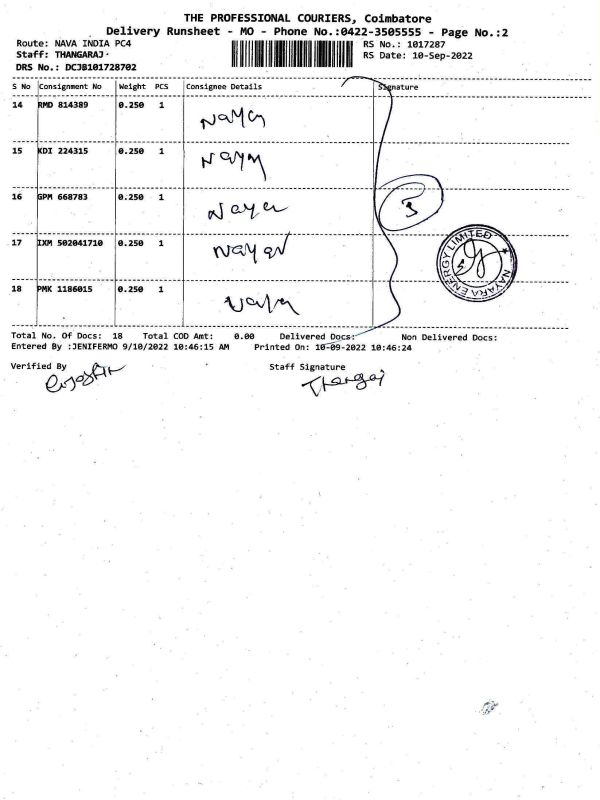 THE PROFESSIONAL COURIERS, Coimbatore
Delivery Runsheet - MO - Phone No.:0422-3505555 - Page No.:2
Route: NAVA INDIA PC4 RS No.: 1017287
Staff: THANGARAJ· RS Date: 10-Sep-2022
DRS No.: DCJB101728702
S No Consignment No Weight PCS Consignee Details Signature
14 RMD 814389 0.250 1
15 KDI 224315 0.250 1
16 GPM 668783 0.250 1 Nayar
5
17 IXM 502041710 0.250 1
NAYARA ENERGY LIMITED
18 PMK 1186015 0.250 1
Total No. Of Docs: 18 Total COD Amt: 0.00 Delivered Docs: Non Delivered Docs:
Entered By :JENIFERMO 9/10/2022 10:46:15 AM Printed On: 10-09-2022 10:46:24
Verified By Staff Signature
Thangaj